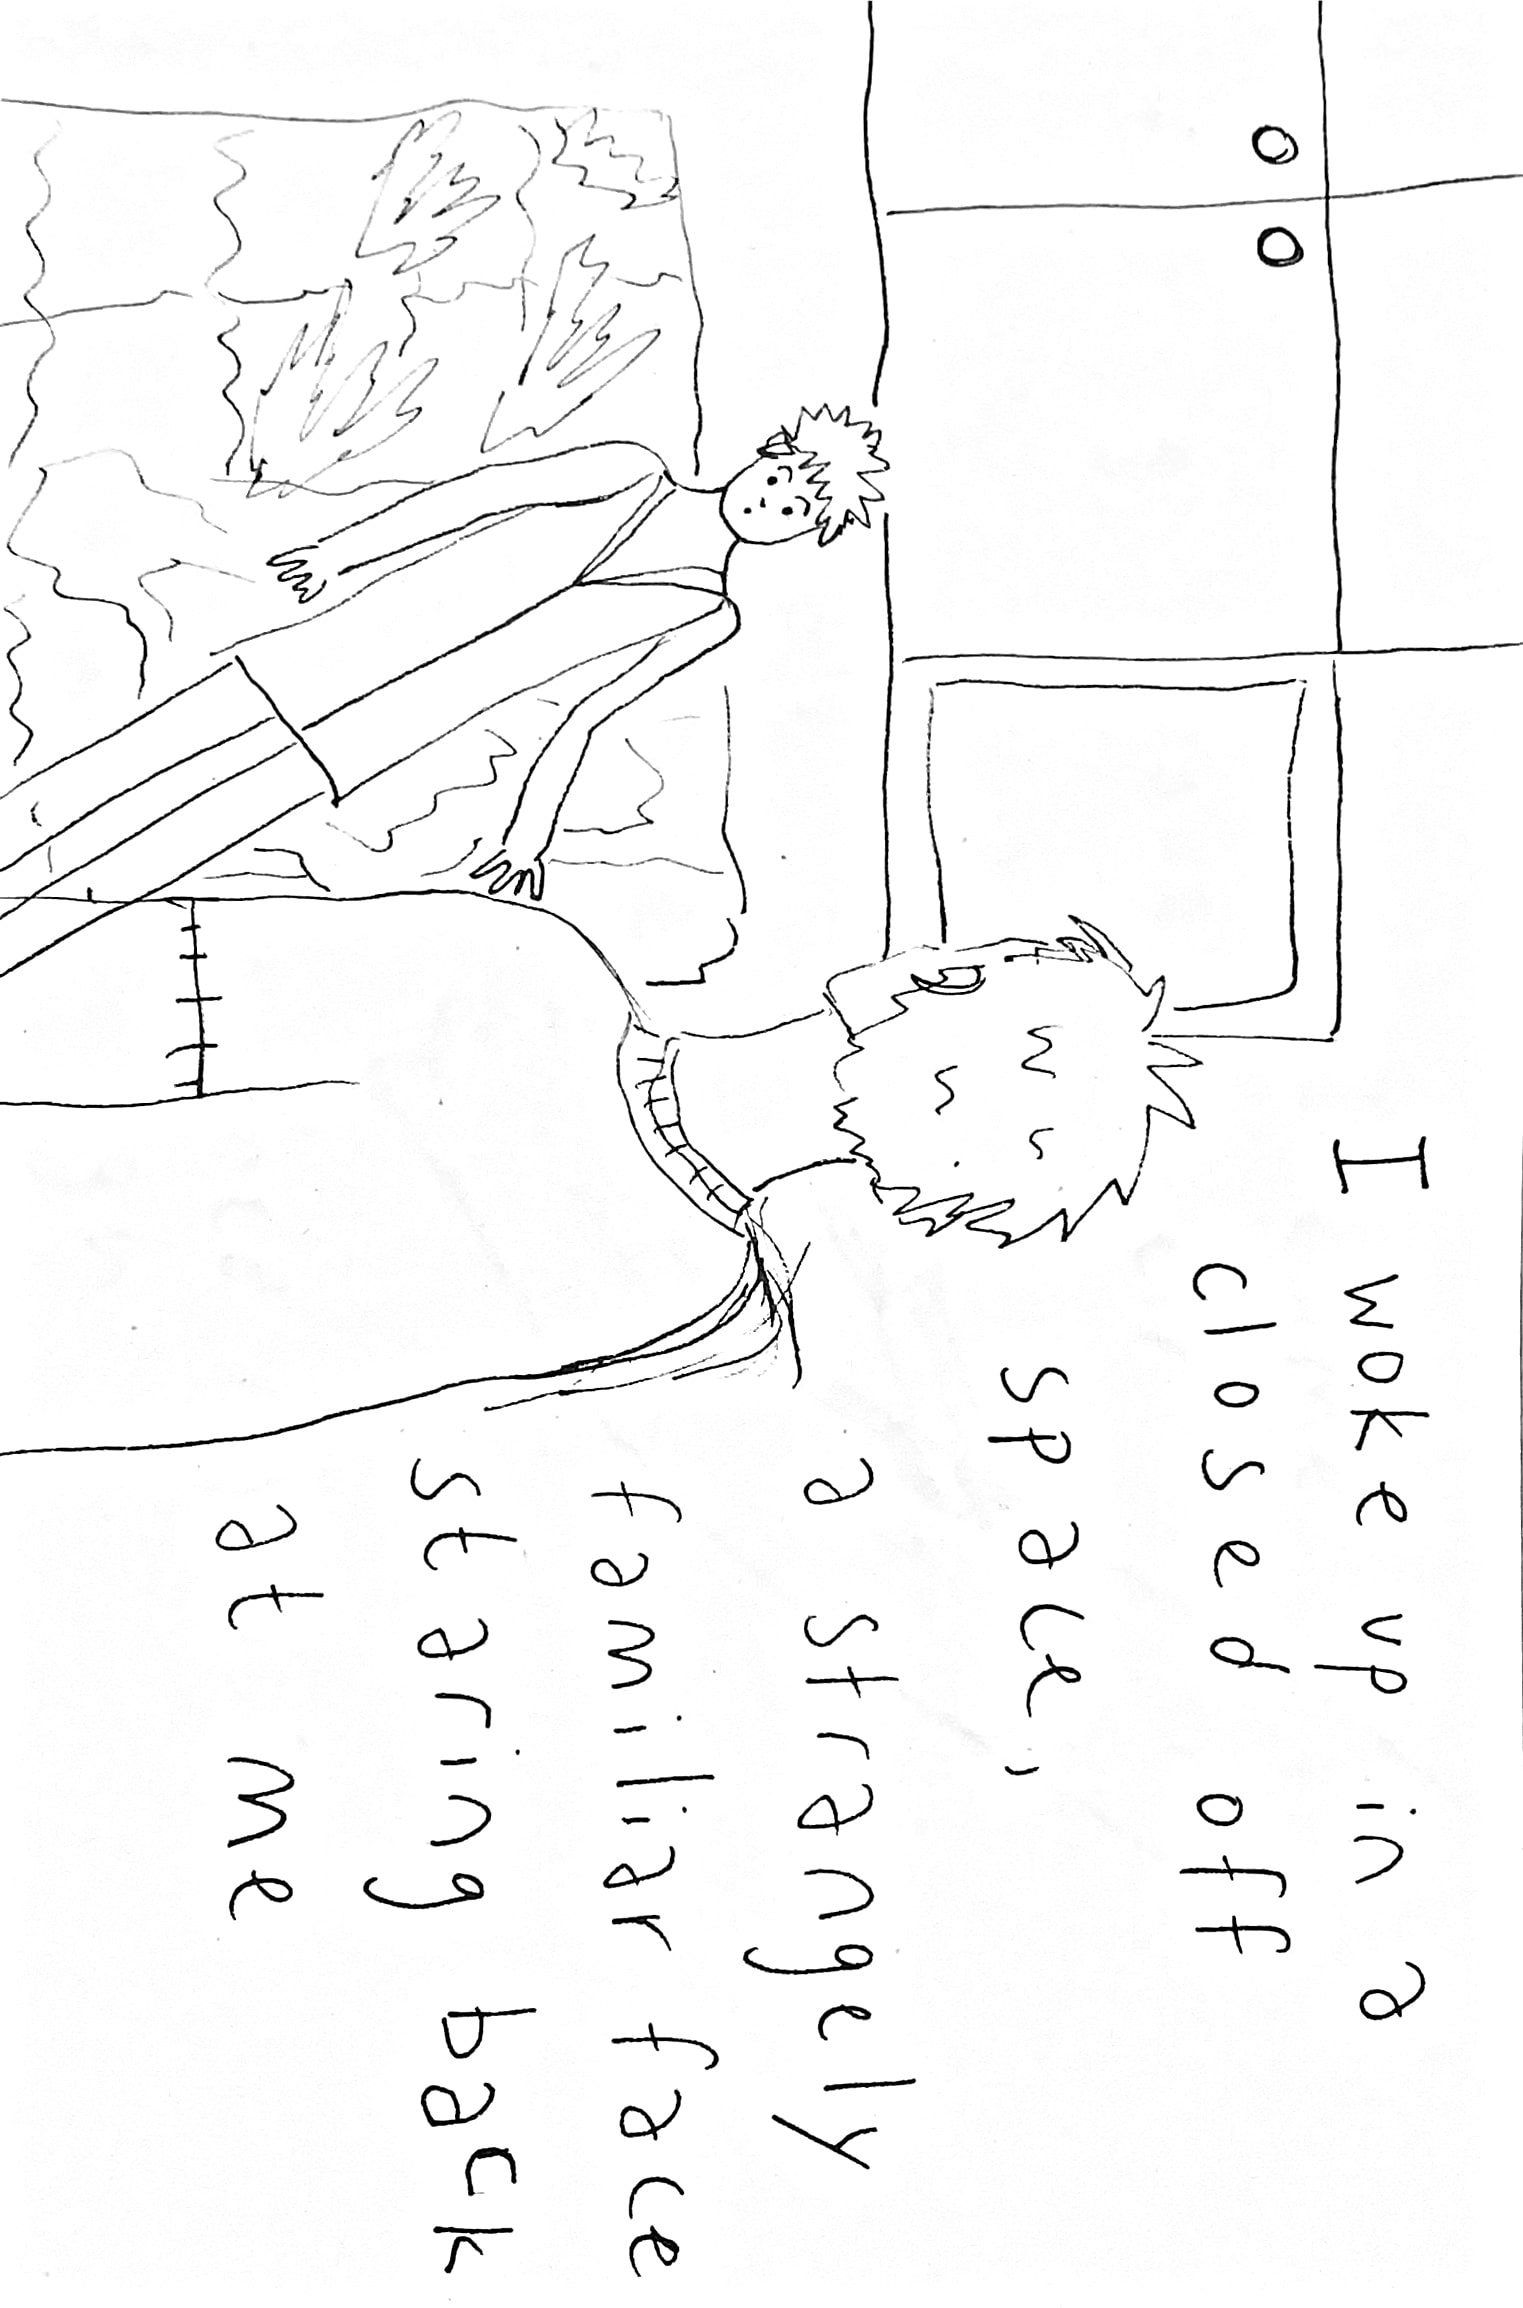 I woke up in a
closed off
space,
a strangely
familiar face
staring back
at me